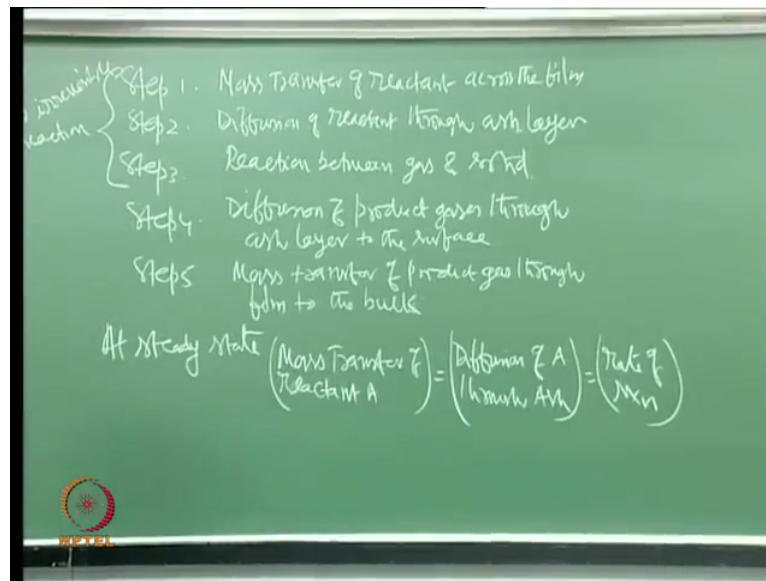 irreversible
reaction
Step 1. Mass Transfer of reactant across the film
Step 2. Diffusion of reactant through ash layer
Step 3. Reaction between gas & solid.
Step 4. Diffusion of product gases through
ash layer to the surface
Step 5 Mass transfer of product gas through
film to the bulk
At steady state (Mass Transfer of reactant A) = (Diffusion of A through Ash) = (rate of rxn)
NPTEL